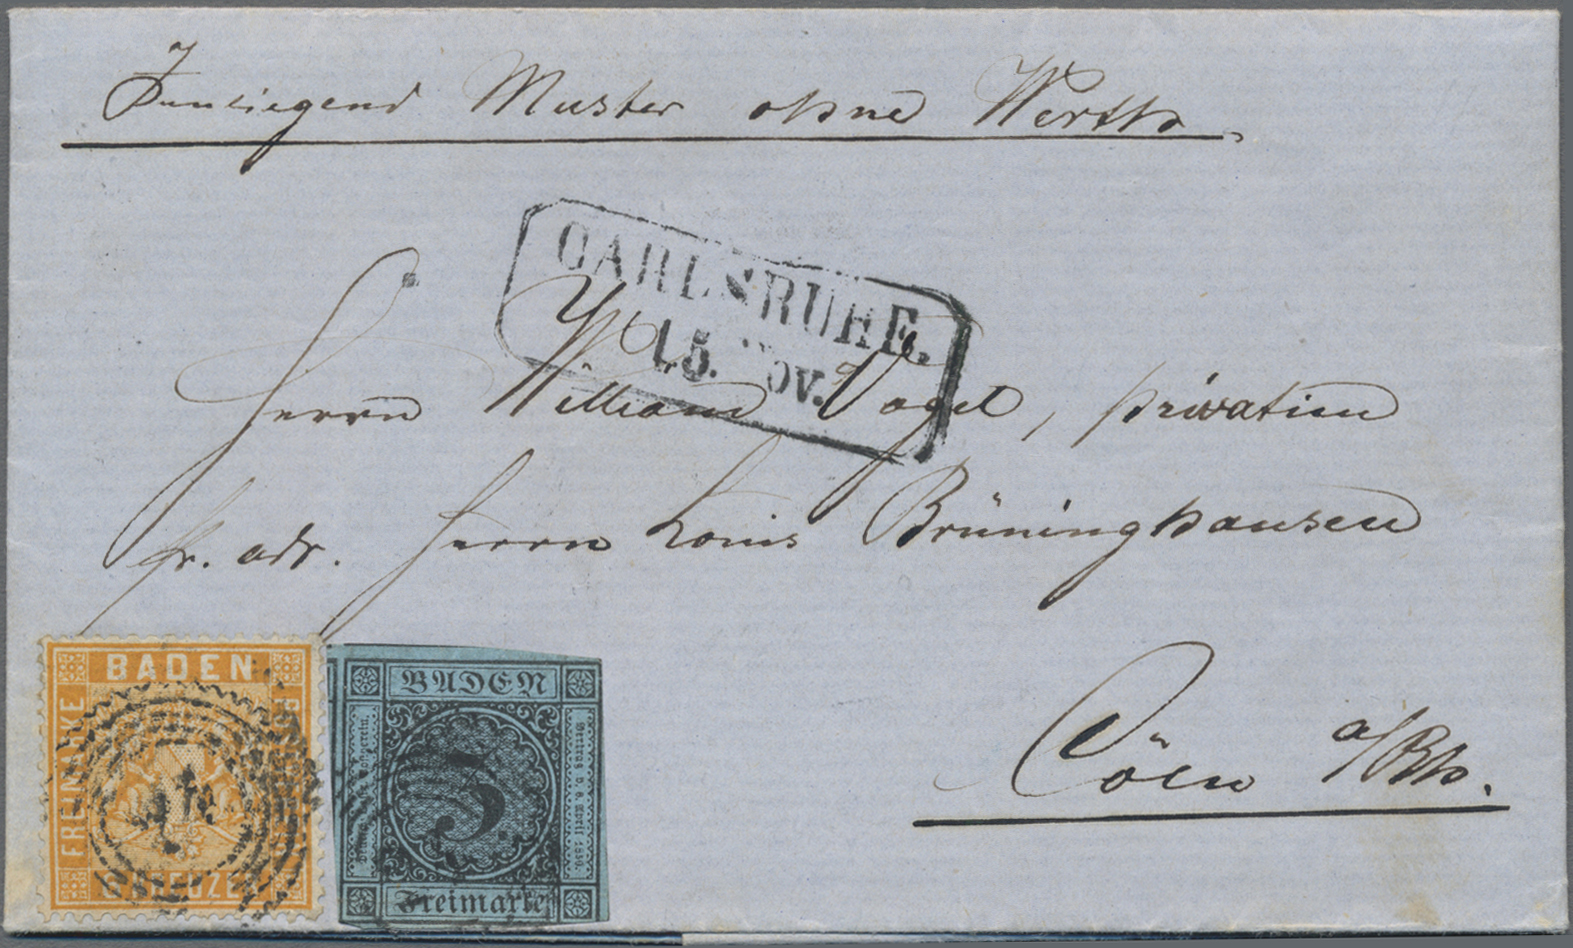 Innliegend Muster ohne Werth
CARLSRUHE.
15. NOV.
Herrn William Vogel, privatim
pr. adr. Herrn Louis Brüninghausen
Cöln a/Rh.
BADEN
FREIMARKE
KREUZER
BADEN
3
Vertrag v. 6. April 1850.
Freimarke